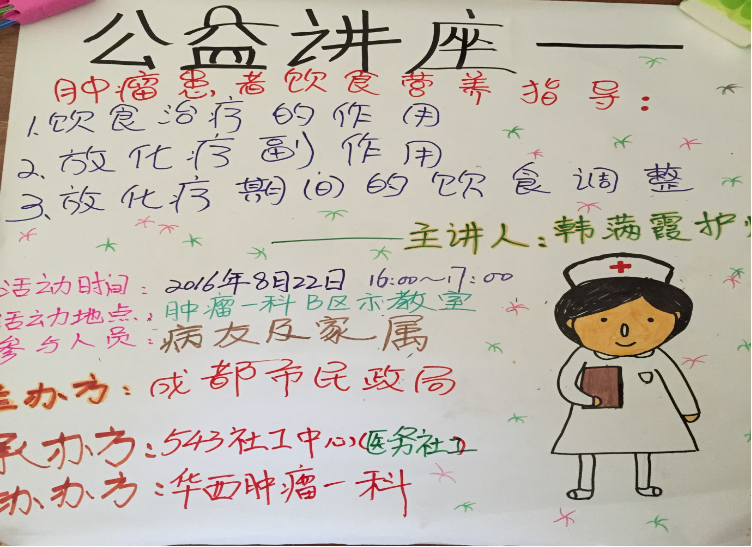 公益讲座——
肿瘤患者饮食营养指导：
1.饮食治疗的作用
2.放化疗副作用
3.放化疗期间的饮食调整
——主讲人：韩满霞护
活动时间：2016年8月22日 16:00~17:00
活动地点：肿瘤一科B区示教室
参与人员：病友及家属
主办方：成都市民政局
承办方：543社工中心(医务社工)
办方：华西肿瘤一科